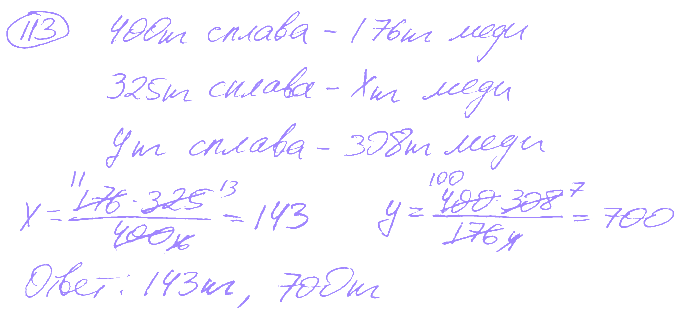 113 400т сплава - 176т меди
325т сплава - Xт меди
Yт сплава - 308т меди
X = 176 · 325 / 400 = 143 y = 400 · 308 / 176 = 700
Ответ: 143т, 700т